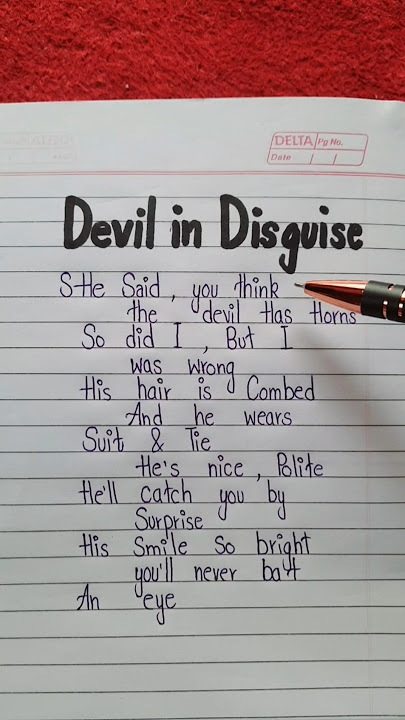 DELTA Pg No.
Date / /
Devil in Disguise
SHe Said, you think
the devil Has Horns
So did I, But I
was wrong
His hair is Combed
And he wears
Suit & Tie
He's nice, Polite
He'll catch you by
Surprise
His Smile so bright
you'll never batt
An eye